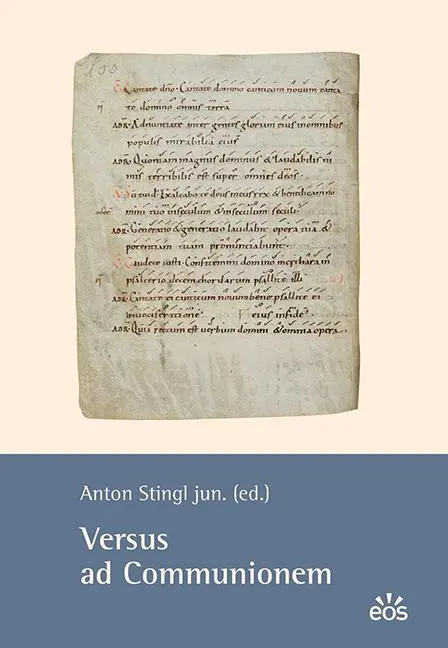 100
Cantate dño. Cantate domino canticum novum canta
te domino omnis terra
ADR. Adnuntiate inter gentes gloriam eius inomnibus
populis mirabilia eius
ADR. Quoniam magnus dominus & laudabilis ni
mis terribilis est super omnes deos
Exaltabo te deus meus rex & benedicam no
mini tuo inseculum & inseculum seculi
ADR. Generatio & generatio laudabit opera tua &
potentiam tuam pronuntiabunt
Gaudete iusti. Confitemini domino incythara in
psalterio decem chordarum psallite illi
ADR. Cantate ei canticum novum bene psallite ei
invociferatione eius infide
ADR. Quia rectum est verbum domini & omnia opera
Anton Stingl jun. (ed.)
Versus
ad Communionem
eos